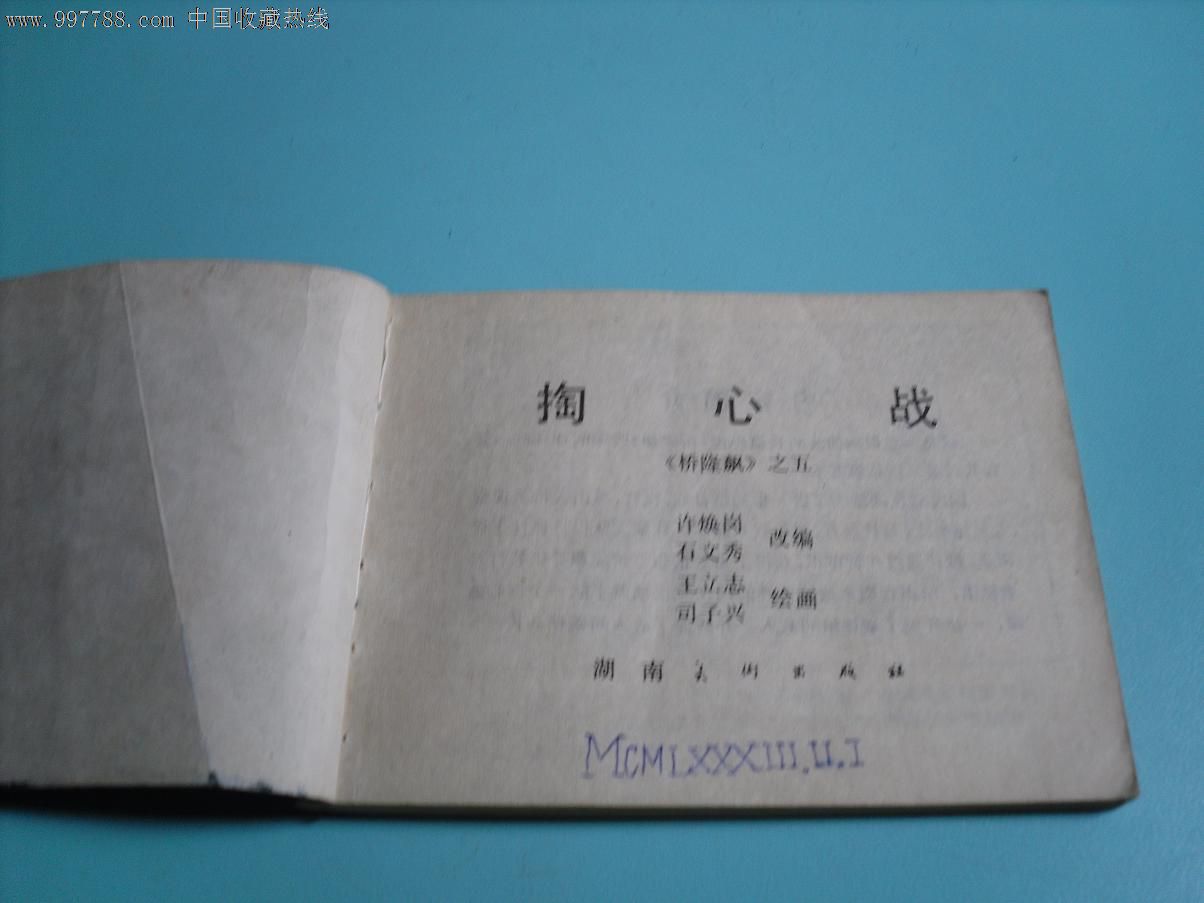 www.997788.com 中国收藏热线
掏心战
《桥隆飙》之五
许焕岗
石文秀 改编
王立志
司子兴 绘画
湖南美术出版社
MCMLXXXIII.II.I